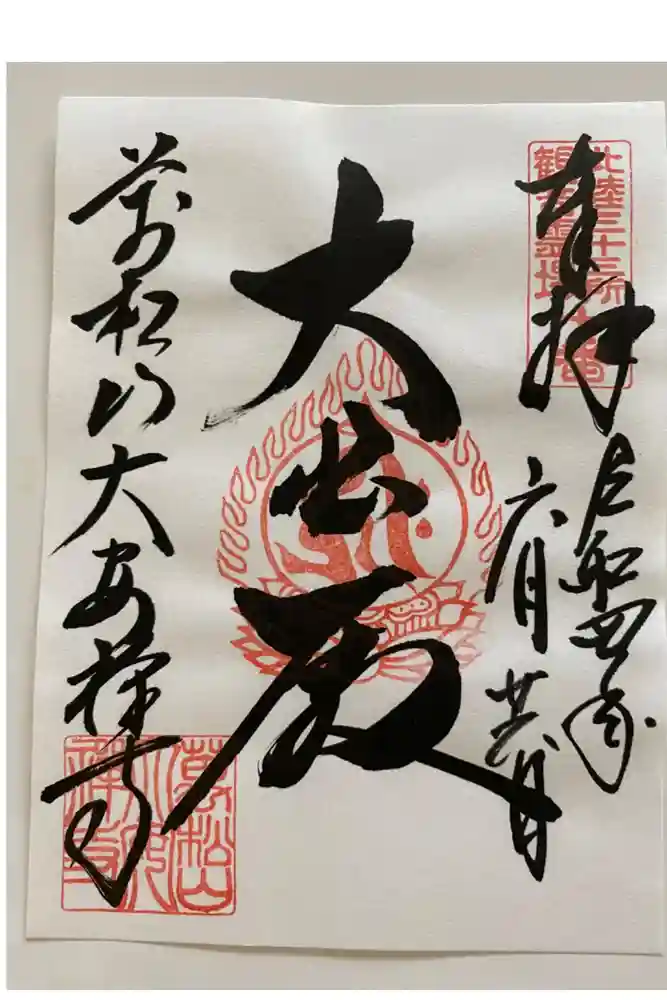 北陸三十三所
観音霊場
奉拝
令和四年
六月廿
大悲殿
萬松山大安禅寺
萬松山
大安
禅寺